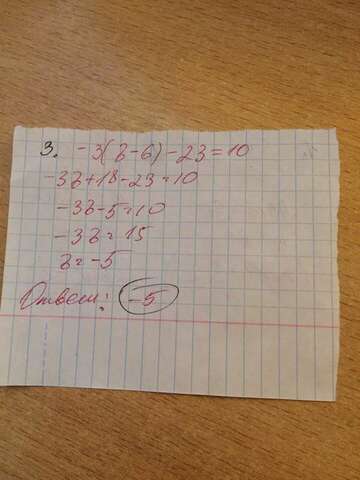 3. -3(z-6)-23=10
-3z+18-23=10
-3z-5=10
-3z=15
z=-5
Ответ: -5